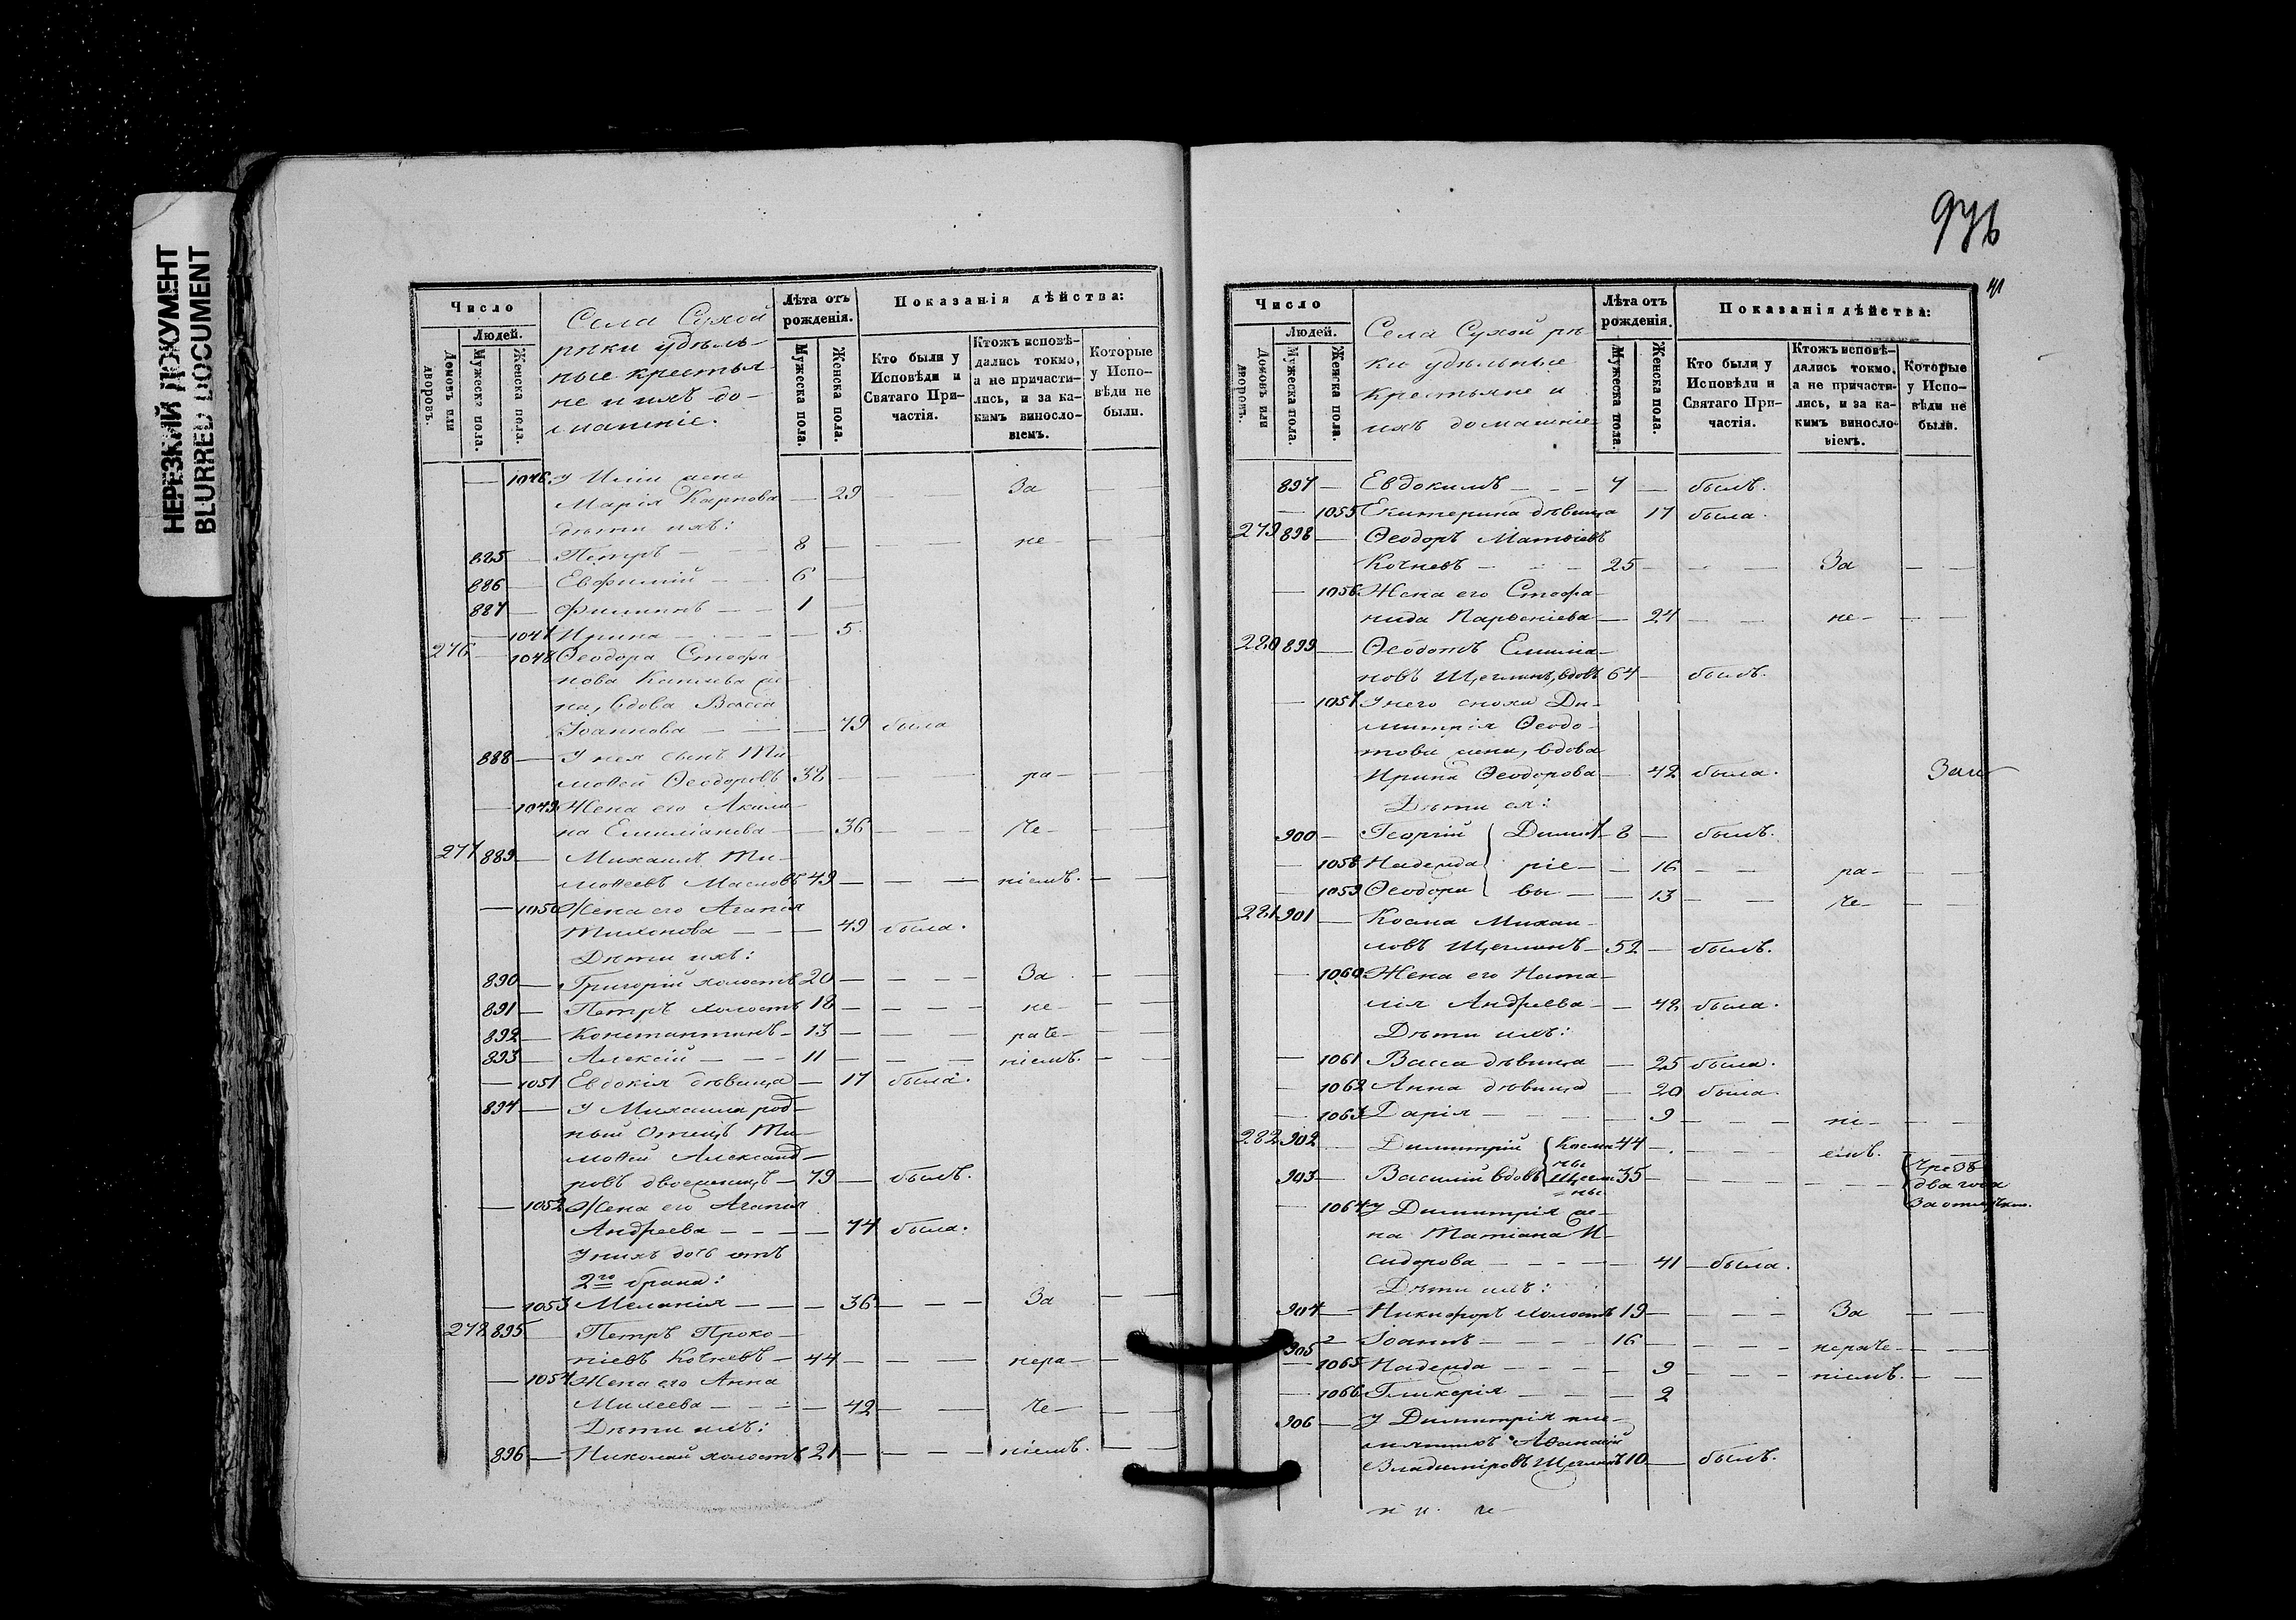 НЕРЕЗКИЙ ДОКУМЕНТ
BLURRED DOCUMENT
Число
Людей.
Домовъ или дворовъ.
Мужеска пола.
Женска пола.
Села Сухой
рѣки удѣль-
ные крестья-
не и ихъ до-
машніе.
Лѣта отъ рожденія.
Мужеска пола.
Женска пола.
Показанія дѣйства:
Кто были у Исповѣди и Святаго При-частія.
Ктожъ исповѣ-дались токмо, а не причасти-лись, и за ка-кимъ виносло-віемъ.
Которые у Испо-вѣди не были.
— 1046 У Иліи жена
Марія Карпова — 29 — — За — —
дѣти ихъ:
885 — Петръ — 8 — — — не — — —
886 — Евфимій — 6 —
887 — Филиппъ — — 1 —
— 1047 Ирина — — — — 5.
276 — 1048 Ѳеодора Стефа-
нова жe-
на, вдова Васса
Іоаннова — — — 79 была
888 — У нея сынъ Ти-
моѳей Ѳеодоровъ 38 — — — ра — — —
— 1049 Жена его Акили-
на Емиліанова — — 36 — — че — — —
277 889 — Михаилъ Ти-
моѳеевъ Масловъ 49 — — — ніемъ. — —
— 1050 Жена его Агапія
Тихонова — — — 49 была.
Дѣти ихъ:
890 — Григорій холостъ 20 — — — За — —
891 — Петръ холостъ 18 — — — не — — —
892 — Константинъ — 13 — — — раче —
893 — Алексій — — — 11 — — — ніемъ. — —
— 1051 Евдокія дѣвица — 17 была.
894 — У Михаила род-
ный отецъ Ти-
моѳей Александ-
ровъ двоеженецъ — 79 — былъ.
— 1052 Жена его Агапія
Андреева — — — 74 была.
У нихъ дочь отъ
2го брака:
— 1053 Меланія — — — 36 — — — За — —
278 895 — Петръ Проко-
піевъ Кочневъ — 44 — — — нера — —
— 1054 Жена его Анна
Михеева — — — 42 — — че — — —
Дѣти ихъ:
896 — Николай холостъ 21 — — — — ніемъ. — —
976
41
Число
Людей.
Домовъ или дворовъ.
Мужеска пола.
Женска пола.
Села Сухой рѣ-
ки удѣльные
крестьяне и
ихъ домашніе
Лѣта отъ рожденія.
Мужеска пола.
Женска пола.
Показанія дѣйства:
Кто были у Исповѣди и Святаго При-частія.
Ктожъ исповѣ-дались токмо, а не причасти-лись, и за ка-кимъ виносло-віемъ.
Которые у Испо-вѣди не были.
897 — Евдокимъ — — — 7 — былъ.
— 1055 Екатерина дѣвица 17 была.
279 898 — Ѳеодоръ Матѳіевъ
Кочневъ — — — 25 — — — За — —
— 1056 Жена его Стефа-
нида Парѳеніева — 24 — — не — — —
280 899 — Ѳеодотъ Емиліа-
новъ Щеглинъ, вдовъ 64 — былъ.
— 1057 У него сноха Ди-
митрія Ѳеодо-
това жена, вдова
Ирина Ѳеодорова — 42 была.
Дѣти ея:
900 — Георгій Димит — 8 — былъ.
— 1058 Надежда ріе — — 16 — — ра — — —
— 1059 Ѳеодора вы — — 13 — — че — — —
281 901 — Косма Михаи-
ловъ Щеглинъ — 52 — былъ.
— 1060 Жена его Ната-
лія Андреева — — 48 была.
Дѣти ихъ:
— 1061 Васса дѣвица — 25 была.
— 1062 Анна дѣвица — 20 была.
— 1063 Дарія — — — 9 — — — ні — — —
282 902 — Димитрій Косми 44 — — — емъ.
ны
903 — Василій вдовъ Щегли 35 — — — — — Чрезъ
ны два года
За отлучкою.
— 1064 У Димитрія же-
на Татіана И-
сидорова — — — — 41 — была.
Дѣти ихъ:
904 — Никифоръ холостъ 19 — — — За — —
905 2 — Іоаннъ — — — — 16 — — — нераче — — —
— 1065 Надежда — — — — 9 — — — ніемъ. — —
— 1066 Гликерія — — — 2
906 — У Димитрія пле-
мянникъ Аѳанасій
Владиміровъ Щеглинъ 10 — былъ.